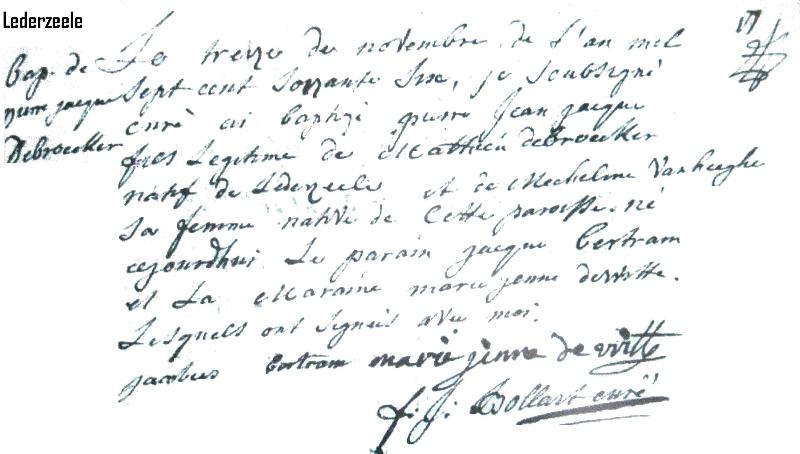 Lederzeele
17
bap. de
pierre jacque
Debroecker
Le treize de novembre de l'an mil
sept cent soixante six, je soubsigné
curé ai baptizé pierre Jean jacque
fils Legitime de Mathieu debroecker
natif de Lederzeele et de Mecheline Vanheeghe
sa femme native de Cette paroisse. né
cejourdhui Le parain jacque bertram
et La Maraine marie jenne dewitte.
Lesquels ont signeés avec moi.
jacobus bertram marie jenne de witte
Bollart curé